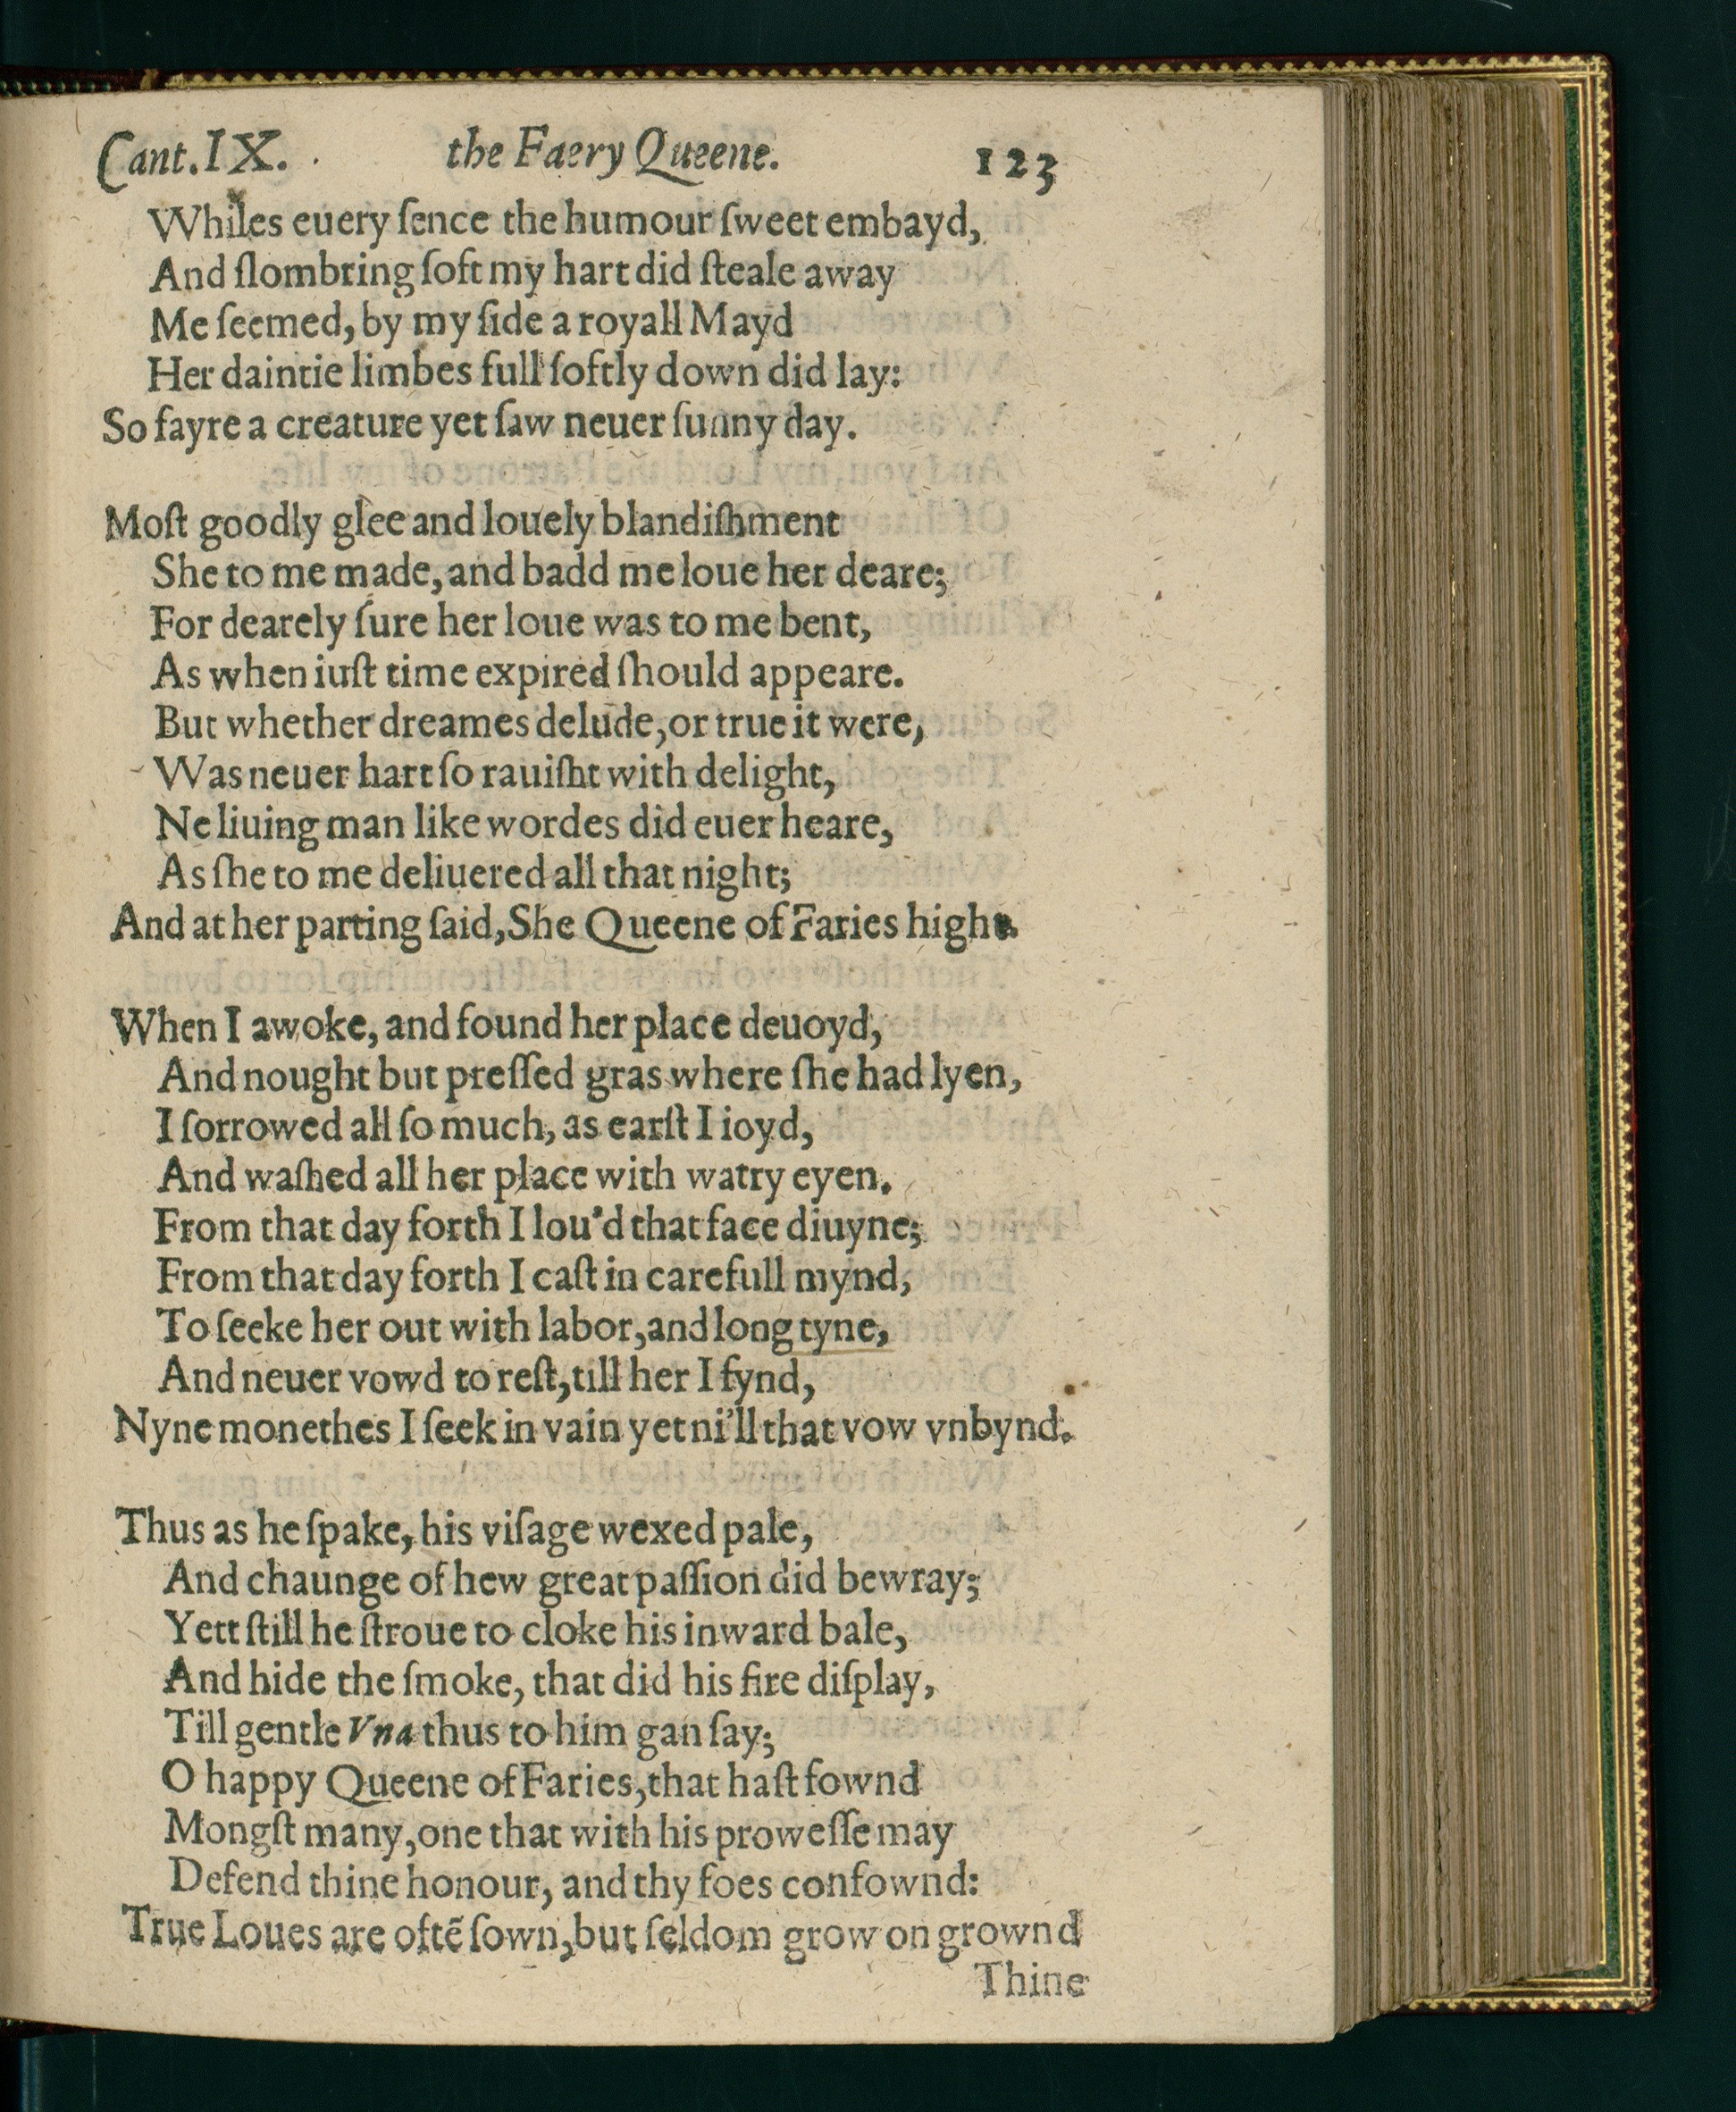 Cant. IX. the Faery Queene. 123
Whiles euery ſence the humour ſweet embayd,
And ſlombring ſoft my hart did ſteale away
Me ſeemed, by my ſide a royall Mayd
Her daintie limbes full ſoftly down did lay:
So fayre a creature yet ſaw neuer ſunny day.
Moſt goodly glee and louely blandiſhment
She to me made, and badd me loue her deare;
For dearely ſure her loue was to me bent,
As when iuſt time expired ſhould appeare.
But whether dreames delude, or true it were,
Was neuer hart ſo rauiſht with delight,
Ne liuing man like wordes did euer heare,
As ſhe to me deliuered all that night;
And at her parting ſaid, She Queene of Faries hight.
When I awoke, and found her place deuoyd,
And nought but preſſed gras where ſhe had lyen,
I ſorrowed all ſo much, as earſt I ioyd,
And waſhed all her place with watry eyen.
From that day forth I lou'd that face diuyne;
From that day forth I caſt in carefull mynd,
To ſeeke her out with labor, and long tyne,
And neuer vowd to reſt, till her I fynd,
Nyne monethes I ſeek in vain yet ni'll that vow vnbynd.
Thus as he ſpake, his viſage wexed pale,
And chaunge of hew great paſſion did bewray;
Yett ſtill he ſtroue to cloke his inward bale,
And hide the ſmoke, that did his fire diſplay,
Till gentle Vna thus to him gan ſay;
O happy Queene of Faries, that haſt fownd
Mongſt many, one that with his proweſſe may
Defend thine honour, and thy foes confownd:
True Loues are oftẽ ſown, but ſeldom grow on grownd
Thine